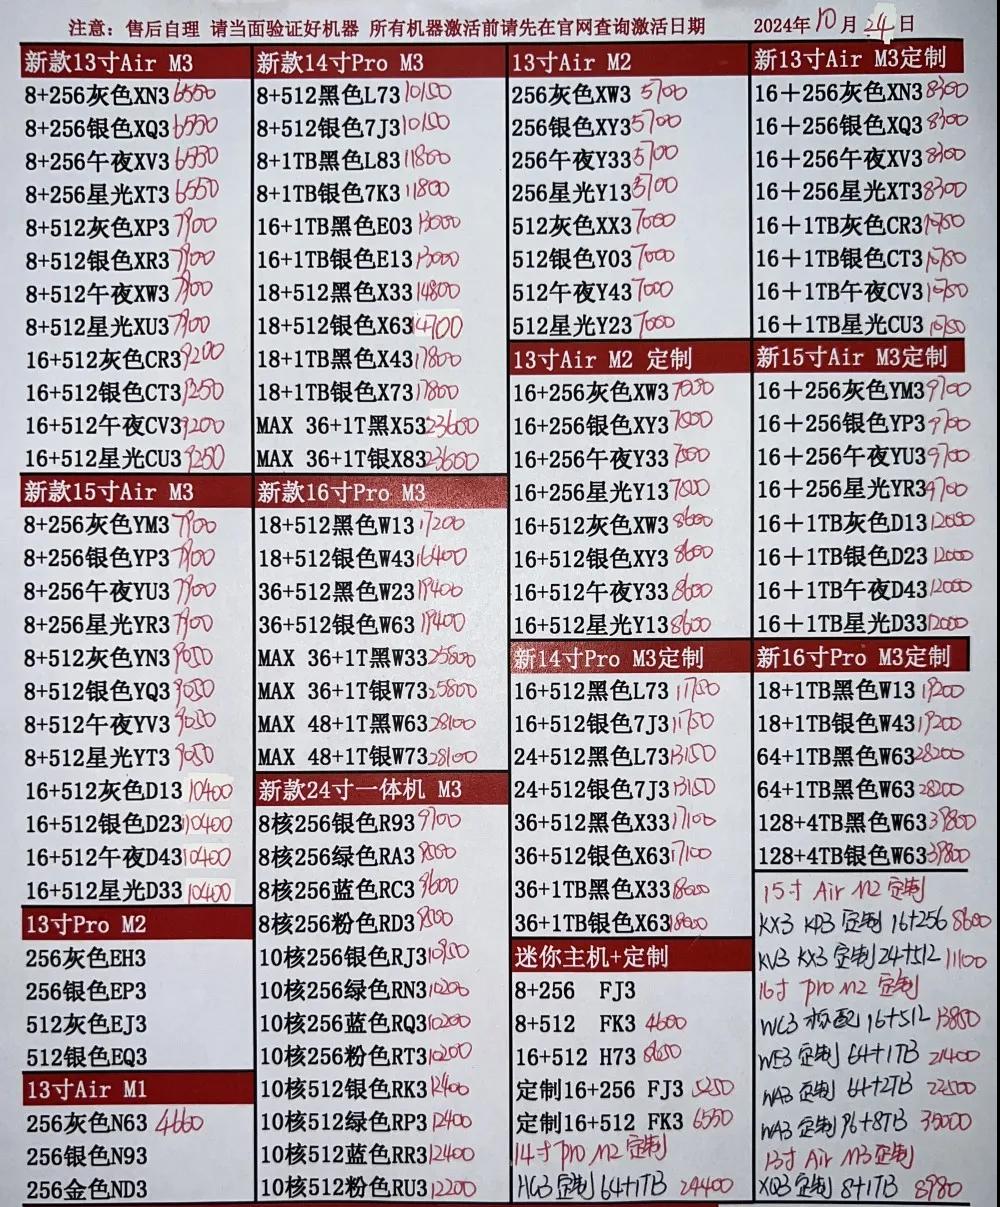 注意：售后自理 请当面验证好机器 所有机器激活前请先在官网查询激活日期
2024年10月24日
新款13寸Air M3
8+256灰色XN3 6550
8+256银色XQ3 6550
8+256午夜XV3 6550
8+256星光XT3 6550
8+512灰色XP3 7900
8+512银色XR3 7900
8+512午夜XW3 7900
8+512星光XU3 7900
16+512灰色CR3 9200
16+512银色CT3 9250
16+512午夜CV3 9200
16+512星光CU3 9250
新款15寸Air M3
8+256灰色YM3 7900
8+256银色YP3 7900
8+256午夜YU3 7900
8+256星光YR3 7900
8+512灰色YN3 9050
8+512银色YQ3 9050
8+512午夜YV3 9050
8+512星光YT3 9050
16+512灰色D13 10400
16+512银色D23 10400
16+512午夜D43 10400
16+512星光D33 10400
13寸Pro M2
256灰色EH3
256银色EP3
512灰色EJ3
512银色EQ3
13寸Air M1
256灰色N63 4660
256银色N93
256金色ND3
新款14寸Pro M3
8+512黑色L73 10150
8+512银色7J3 10150
8+1TB黑色L83 11800
8+1TB银色7K3 11800
16+1TB黑色E03 13000
16+1TB银色E13 13000
18+512黑色X33 14800
18+512银色X63 14700
18+1TB黑色X43 17800
18+1TB银色X73 17800
MAX 36+1T黑X53 23600
MAX 36+1T银X83 23600
新款16寸Pro M3
18+512黑色W13 17200
18+512银色W43 16400
36+512黑色W23 19400
36+512银色W63 19400
MAX 36+1T黑W33 25800
MAX 36+1T银W73 25800
MAX 48+1T黑W63 28100
MAX 48+1T银W73 28100
新款24寸一体机 M3
8核256银色R93 9100
8核256绿色RA3
8核256蓝色RC3 9600
8核256粉色RD3
10核256银色RJ3
10核256绿色RN3 10200
10核256蓝色RQ3 10200
10核256粉色RT3 10200
10核512银色RK3 12400
10核512绿色RP3 12400
10核512银色RR3 12400
10核512粉色RU3 12200
13寸Air M2
256灰色XW3 5700
256银色XY3 5700
256午夜Y33 5700
256星光Y13 5700
512灰色XX3 7000
512银色Y03 7000
512午夜Y43 7000
512星光Y23 7000
13寸Air M2 定制
16+256灰色XW3
16+256银色XY3
16+256午夜Y33
16+256星光Y13
16+512灰色XW3 8600
16+512银色XY3 8600
16+512午夜Y33 8600
16+512星光Y13 8600
新14寸Pro M3定制
16+512黑色L73 11750
16+512银色7J3 11750
24+512黑色L73 13150
24+512银色7J3 13150
36+512黑色X33 17100
36+512银色X63 17100
36+1TB黑色X33 18000
36+1TB银色X63 18000
迷你主机+定制
8+256 FJ3
8+512 FK3 4600
16+512 H73
定制16+256 FJ3 5250
定制16+512 FK3 6550
14寸 pro M2 定制
HG3 定制 64+1TB 24400
新13寸Air M3定制
16＋256灰色XN3 8300
16＋256银色XQ3 8300
16＋256午夜XV3 8300
16＋256星光XT3 8300
16＋1TB灰色CR3 10750
16＋1TB银色CT3 10750
16＋1TB午夜CV3 10750
16＋1TB星光CU3 10750
新15寸Air M3定制
16＋256灰色YM3 9700
16＋256银色YP3 9700
16＋256午夜YU3 9700
16＋256星光YR3 9700
16＋1TB灰色D13 12000
16＋1TB银色D23 12000
16＋1TB午夜D43 12000
16＋1TB星光D33 12000
新16寸Pro M3定制
18+1TB黑色W13 19200
18+1TB银色W43 19200
64+1TB黑色W63 28200
64+1TB黑色W63 28200
128+4TB黑色W63 39800
128+4TB银色W63 39800
15寸 Air M2 定制
KX3 KP3 定制 16+256 8600
KV3 KX3 定制 24+512 11100
16寸 pro M2 定制
WC3 标配 16+512 13850
WE3 定制 64+1TB 21400
WA3 定制 64+2TB 22500
WA3 定制 96+8TB 35000
13寸 Air M3定制
XQ3 定制 8+1TB 8980